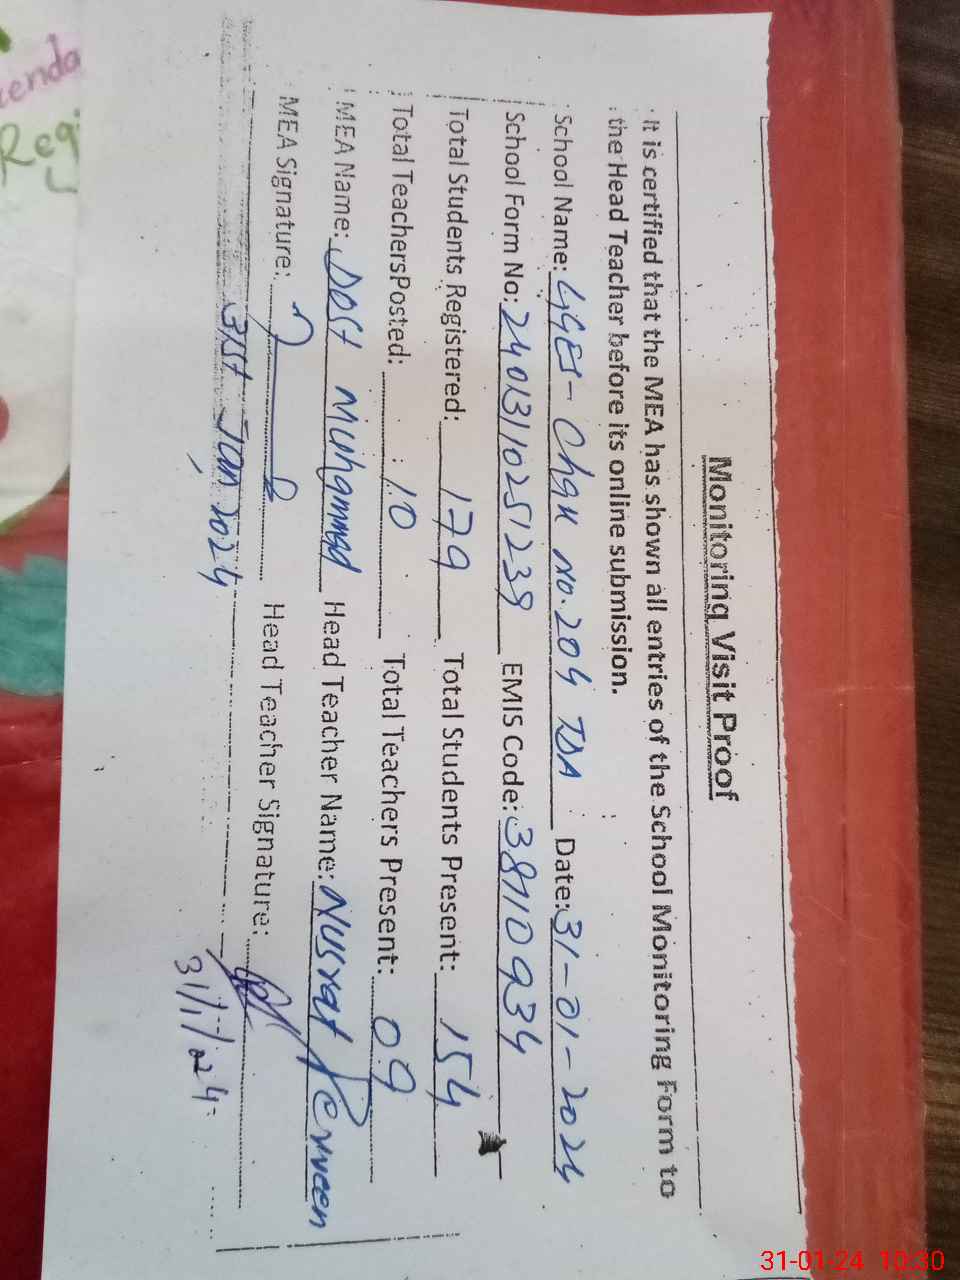 Monitoring Visit Proof
It is certified that the MEA has shown all entries of the School Monitoring Form to
the Head Teacher before its online submission.
School Name: GGES- Chak No.204 TDA Date: 31-01-2024
School Form No: 24013110251239 EMIS Code: 38110934
Total Students Registered: 179 Total Students Present: 154
Total TeachersPosted: 10 Total Teachers Present: 09
MEA Name: Dost Muhammad Head Teacher Name: Nusrat Perveen
MEA Signature: Head Teacher Signature:
31st Jan, 2024
31/1/24.
enda
Reg
31-01-24 10:30